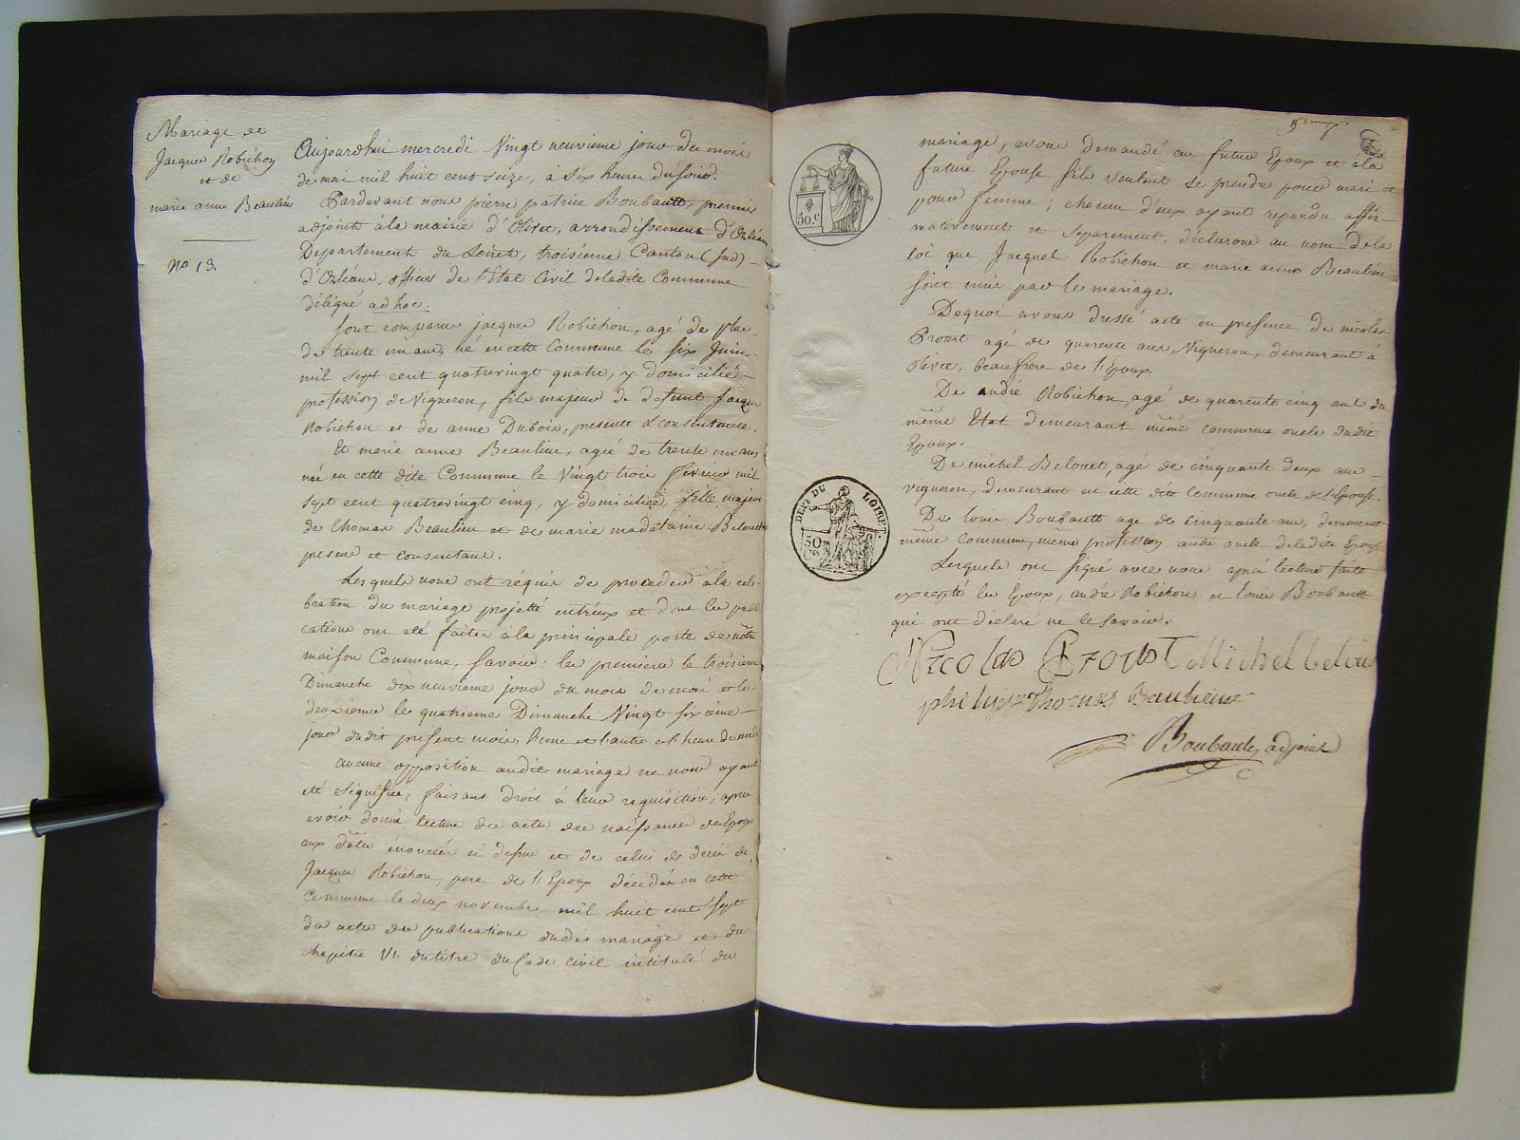 Mariage de
Jacques Robichon
et de
marie anne Beaulieu
no 13.
Aujourdhui mercredi Vingt neuvieme jour du mois
de mai mil huit cent seize, à six heures du soir.
Pardevant nous pierre patrice Boubault, premier
adjoint à la mairie d'Olivet, arrondissement d'Orléans
Département du Loiret, troisième Canton (sud)
d'Orléans, officier de l'Etat Civil deladite Commune
délégué ad hoc.
sont comparus jacques Robichon, agé de plus
de trente un ans, né en cette Commune le six Juin
mil sept cent quatrevingt quatre, y domicilié
profession de Vigneron, fils majeur de defunt Jacques
Robichon et de anne Dubois, presente & consentante.
Et marie anne Beaulieu, agée de trente un ans
née en cette dite Commune le Vingt trois fevrier mil
sept cent quatrevingt cinq, y domiciliée, fille majeure
de thomas Beaulieu et de marie madelaine Belouet
presens et consentans.
Lesquels nous ont réquis de proceder à la cele-
bration du mariage projetté entr'eux et dont les publi
cations ont été faites à la principale porte de notre
maison Commune, savoir: la premiere le troisieme
Dimanche dix neuvieme jour du mois de mai et la
deuxieme le quatrieme Dimanche Vingt six ème
jour dudit present mois, l'une et l'autre à l'heure de midi
aucune opposition audit mariage ne nous ayant
été signifiée; faisant droit à leur requisition, après
avoir donné lecture des actes de naissance des Epoux
aux dates énoncées ci dessus et de celui de decès de
Jacques Robichon, pere de l'Epoux décédé en cette
Commune le deux novembre mil huit cent sept
des actes de publications dudit mariage et du
chapitre VI. du titre du Code civil intitulé du
mariage, avons demandé au futur Epoux et à la
future Epouse s'ils veulent se prendre pour mari et
pour femme; chacun d'eux ayant repondu affir-
mativement et séparement, déclarons au nom de la
loi que Jacques Robichon et marie anne Beaulieu
sont unis par le mariage.
De quoi avons dressé acte en presence de nicolas
Proust agé de quarente ans, Vigneron, demeurant à
Olivet, beaufrère de l'Epoux
De andré Robichon, agé de quarente cinq ans du
même Etat demeurant même commune oncle dudit
Epoux.
De michel Belouet, agé de cinquante deux ans
vigneron, demeurant en cette dite Commune oncle de l'Epouse.
De louis Boubault agé de cinquante ans, demeurant
même commune, même profession aussi oncle deladite Epouse
Lesquels ont signé avec nous après lecture faite
excepté les Epoux, andré Robichon et louis Boubault
qui ont déclaré ne le savoir.
Nicolas Proust Michel belou
Thomas Beaulieux
Boubault, adjoint
50.c
DEPT DU LOIRET.
50